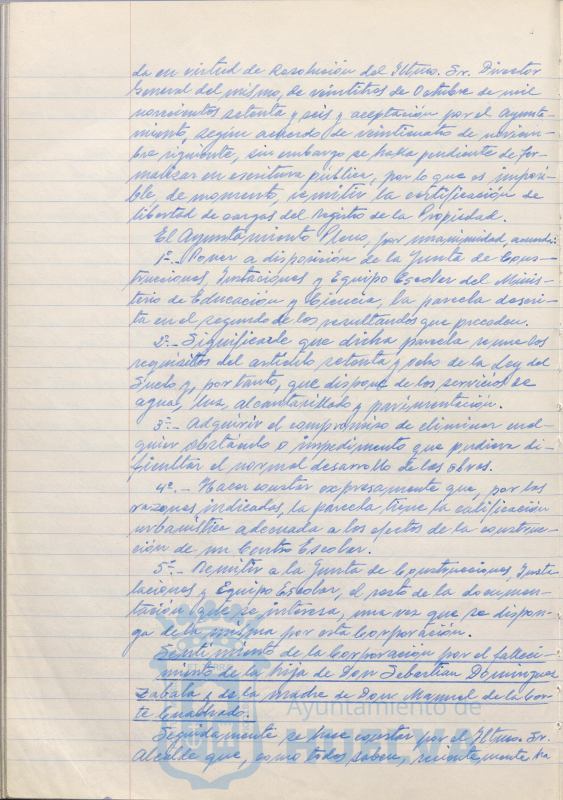 da en virtud de Resolución del Iltmo. Sr. Director
General del mismo, de veintitres de Octubre de mil
novecientos setenta y seis y aceptación por el Ayunta-
miento, según acuerdo de veinticuatro de noviem-
bre siguiente, sin embargo se halla pendiente de for-
malizar en escritura pública, por lo que es imposi-
ble, de momento, remitir la certificación de
libertad de cargas del Registro de la Propiedad.
El Ayuntamiento Pleno, por unanimidad, acuerda:
1º.- Poner a disposición de la Junta de Cons-
trucciones, Instalaciones y Equipo Escolar del Minis-
terio de Educación y Ciencia, la parcela descri-
ta en el segundo de los resultandos que preceden.
2º.- Significarle que dicha parcela reune los
requisitos del artículo setenta y ocho de la Ley del
Suelo y, por tanto, que dispone de los servicios de
agua, luz, alcantarillado y pavimentación.
3º.- Adquirir el compromiso de eliminar cual-
quier obstáculo o impedimento que pudiera di-
ficultar el normal desarrollo de las obras.
4º.- Hacer constar expresamente que, por las
razones indicadas, la parcela tiene la calificación
urbanística adecuada a los efectos de la construc-
ción de un Centro Escolar.
5º.- Remitir a la Junta de Construcciones, Insta-
laciones y Equipo Escolar, el resto de la documen-
tación que se interesa, una vez que se dispon-
ga de la misma por esta Corporación.
Sentimiento de la Corporación por el falleci-
miento de la hija de Don Sebastian Dominguez
Zabala y de la madre de Don Manuel de la Cor-
te Cuadrado.
Seguidamente se hace constar por el Iltmo. Sr.
Alcalde que, como todos saben, recientemente ha
Ayuntamiento de
HUELVA